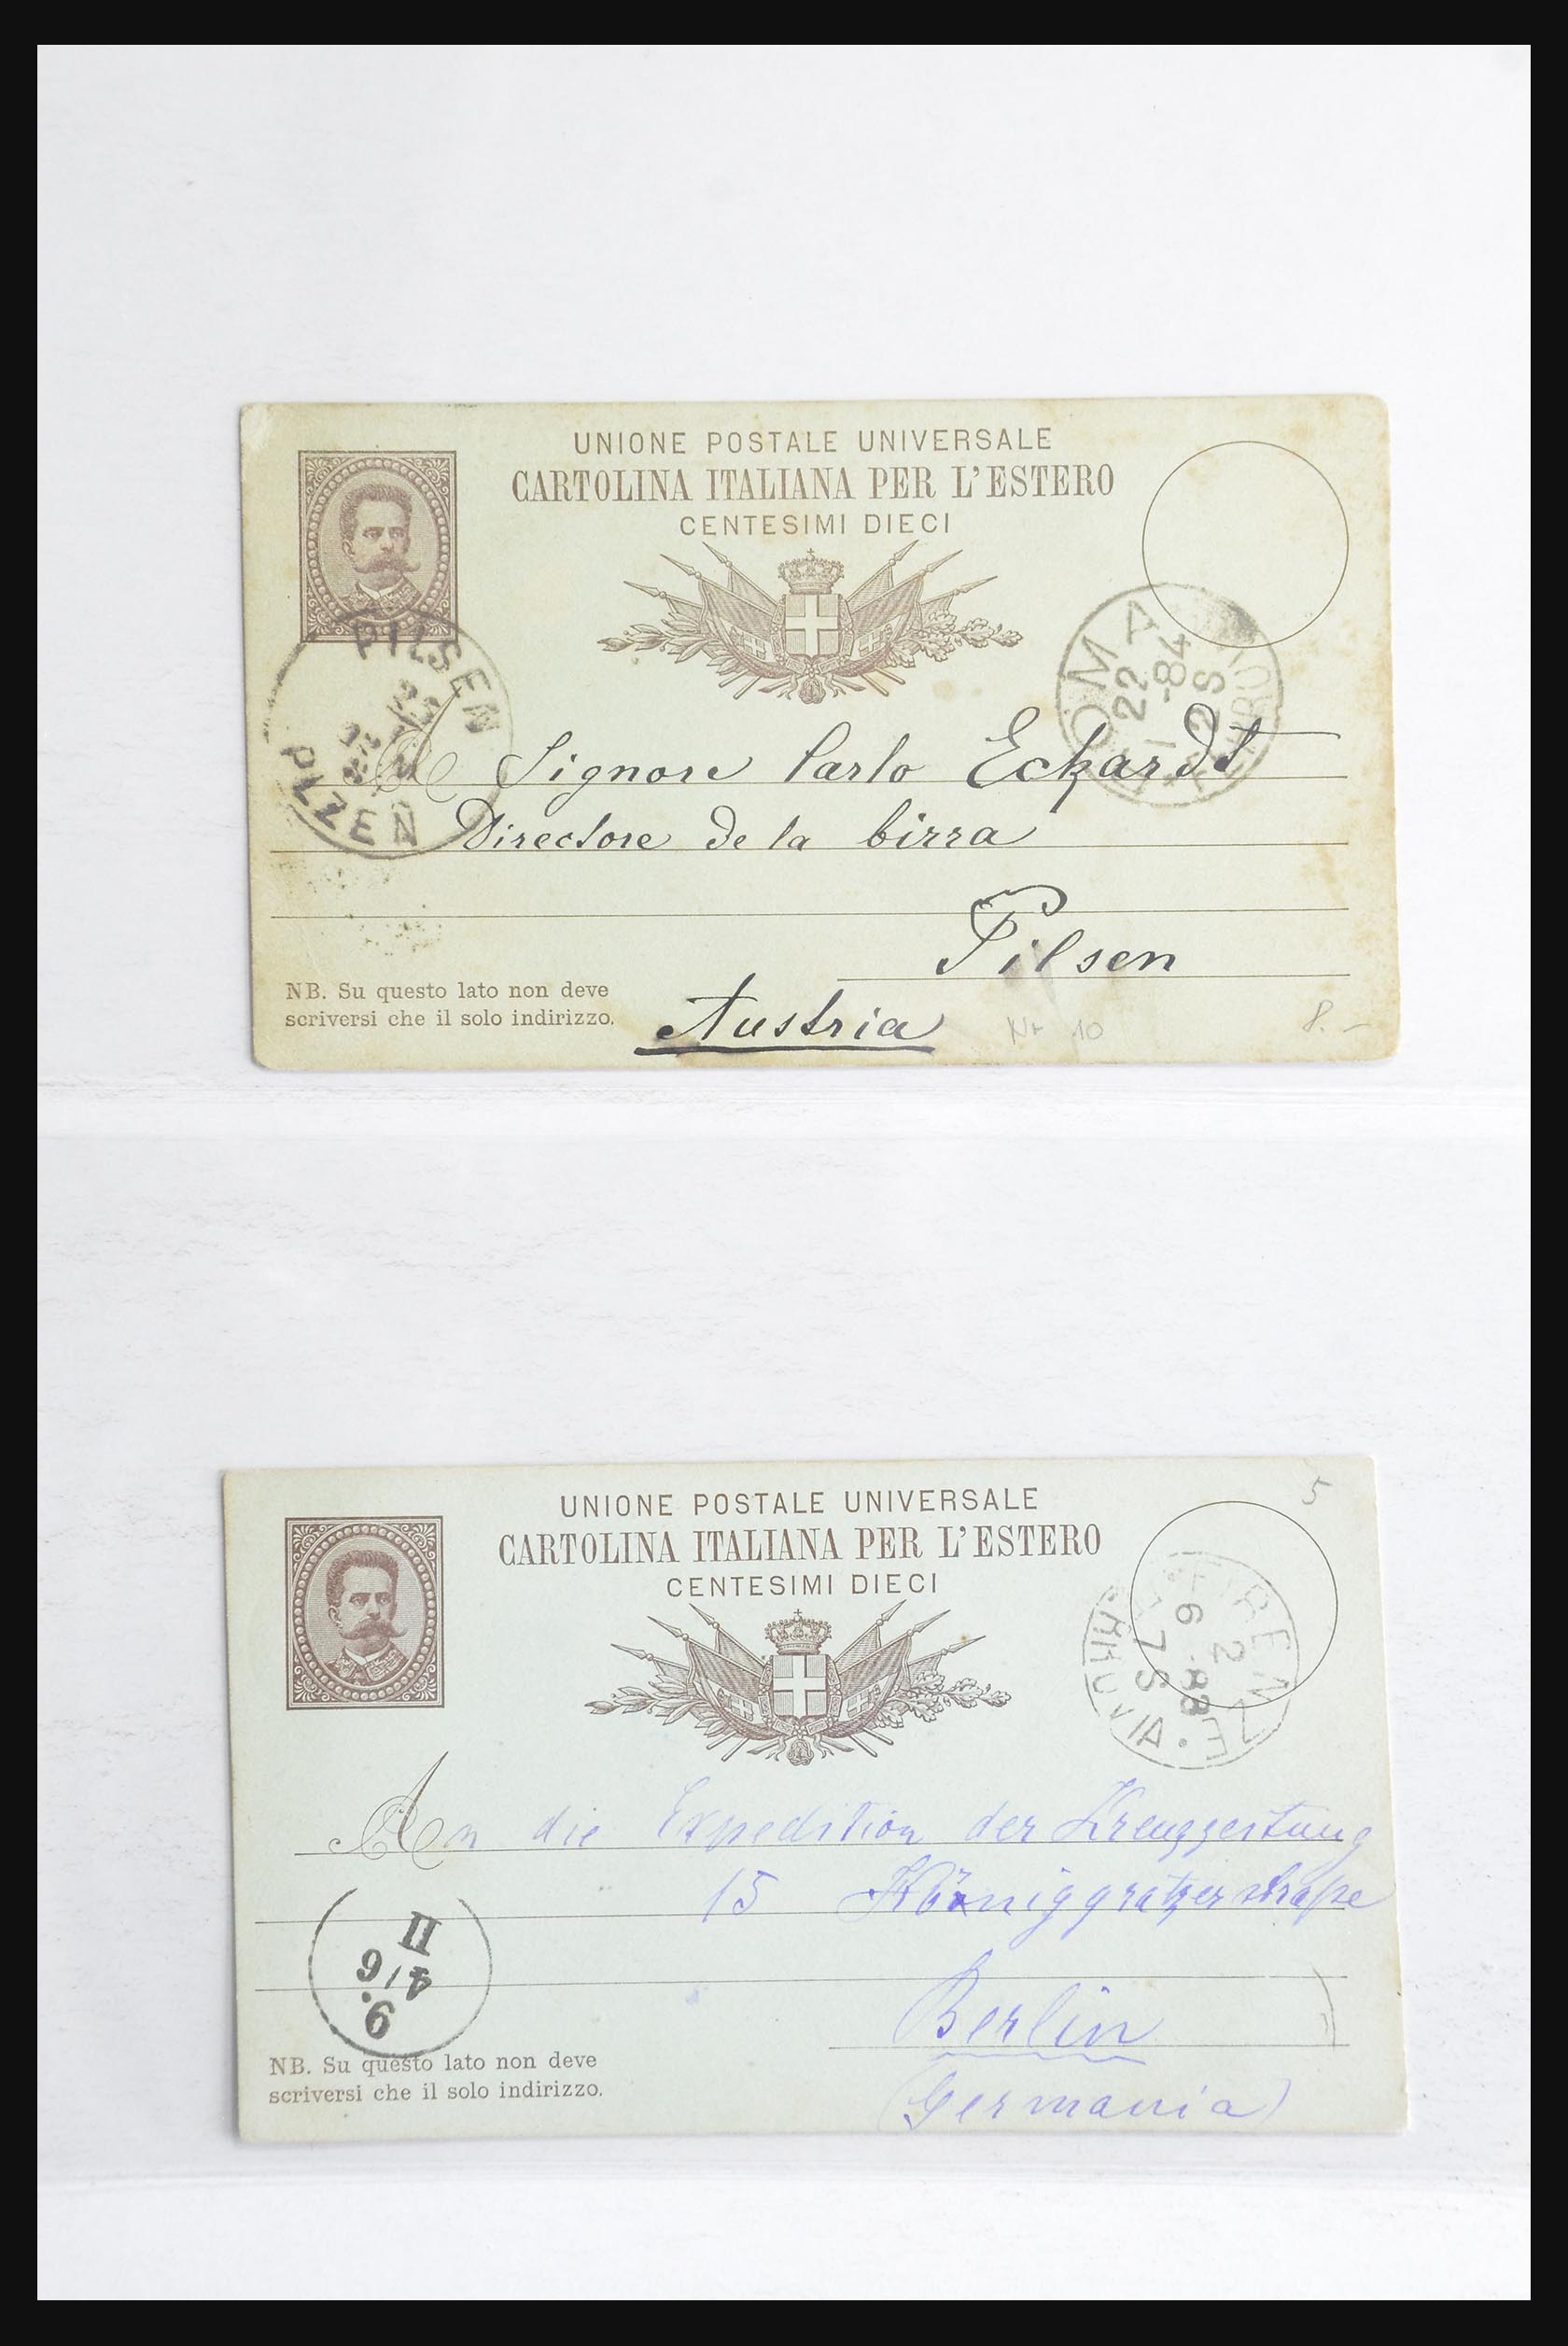 UNIONE POSTALE UNIVERSALE
CARTOLINA ITALIANA PER L'ESTERO
CENTESIMI DIECI
PILSEN
PLZEN
ROMA
22
1-84
2S
A Signore Carlo Eckardt
Directore de la birra
Pilsen
Austria
NB. Su questo lato non deve
scriversi che il solo indirizzo.
Nr 10
8.-
5
UNIONE POSTALE UNIVERSALE
CARTOLINA ITALIANA PER L'ESTERO
CENTESIMI DIECI
FIRENZE
2
6-88
7S
An die Expedition der Kreuzzeitung
15 Königgrätzerstraße
Berlin
(Germania)
II
4/6
9.
NB. Su questo lato non deve
scriversi che il solo indirizzo.